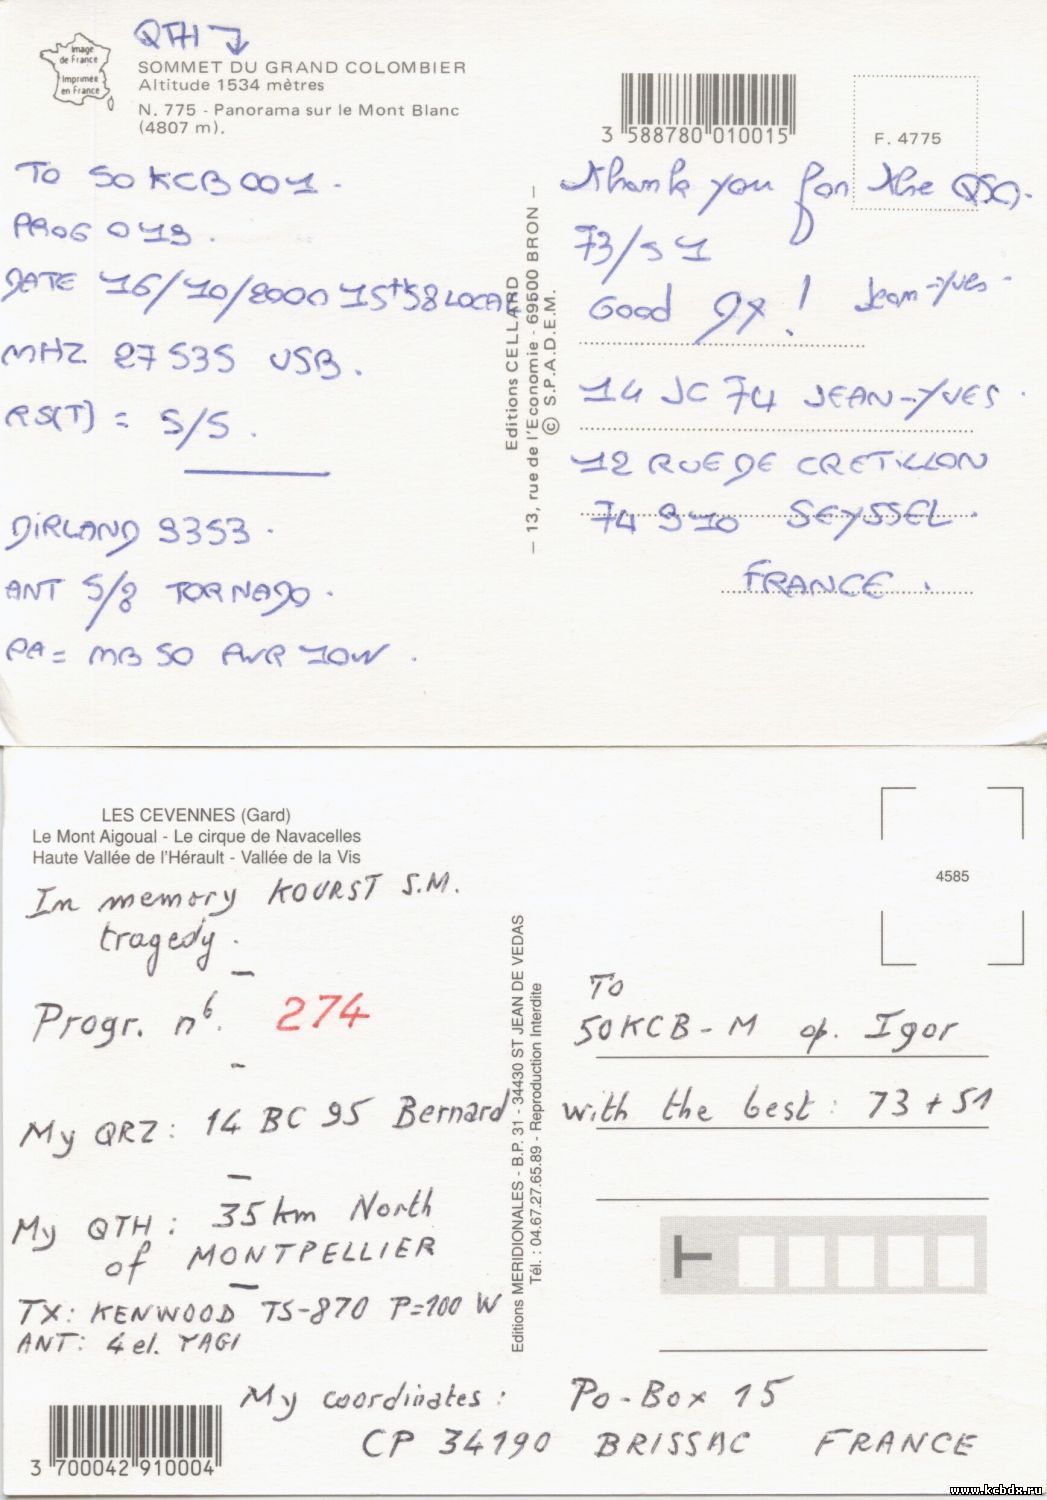 QTH
Image
de France
Imprimée
en France
SOMMET DU GRAND COLOMBIER
Altitude 1534 mètres
N. 775 - Panorama sur le Mont Blanc
(4807 m).
3 588780 010015
F. 4775
TO 50 KCB 001.
PROG 019.
DATE 16/10/2000 15H58 LOCAL
MHZ 27 535 USB.
RS(T) = 5/5.
DIRLAND 9353.
ANT 5/8 TORNADO.
PA = MB 50 PWR 10W.
Editions CELLARD
– 13, rue de l'Economie - 69500 BRON –
© S.P.A.D.E.M.
Thank you for the QSO.
73/51
Good DX! Jean-Yves.
14 JC 74 JEAN-YVES.
12 RUE DE CRETILLON
74 910 SEYSSEL.
FRANCE.
LES CEVENNES (Gard)
Le Mont Aigoual - Le cirque de Navacelles
Haute Vallée de l'Hérault - Vallée de la Vis
4585
In memory KOURST S.M.
tragedy.
Progr. n6. 274
My QRZ: 14 BC 95 Bernard
My QTH: 35 km North
of MONTPELLIER
TX: KENWOOD TS-870 P=100 W
ANT: 4 el. YAGI
Editions MERIDIONALES - B.P. 31 - 34430 ST JEAN DE VEDAS
Tél. : 04.67.27.65.89 - Reproduction Interdite
To
50KCB-M op. Igor
with the best: 73 + 51
My coordinates: Po-Box 15
CP 34190 BRISSAC FRANCE
3 700042 910004
www.kcbdx.ru